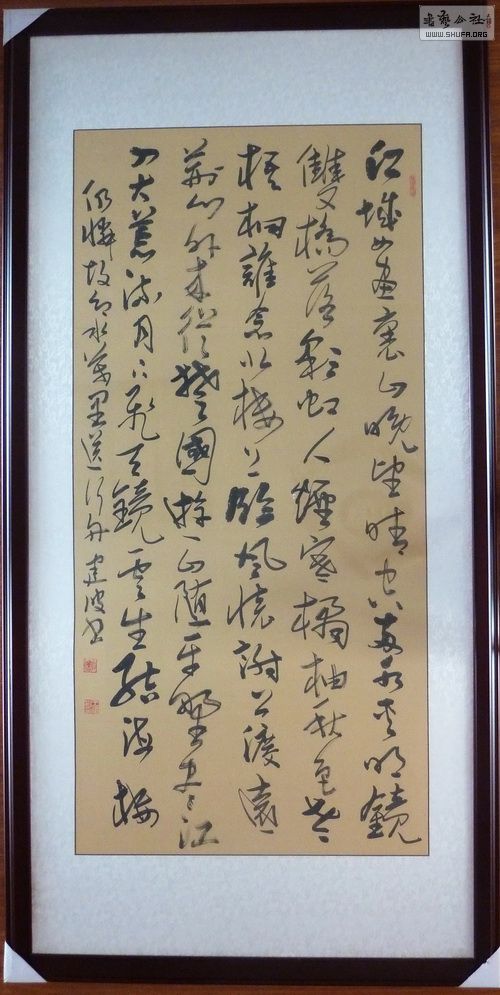 江城如畫裏山晚望晴空兩水夾明鏡
雙橋落彩虹人煙寒橘柚秋色老
梧桐誰念北樓上臨風懷謝公渡遠
荊門外來從楚國遊山隨平野盡江
入大荒流月下飛天鏡雲生結海樓
仍憐故鄉水萬里送行舟 建波書
書藝公社
WWW.SHUFA.ORG